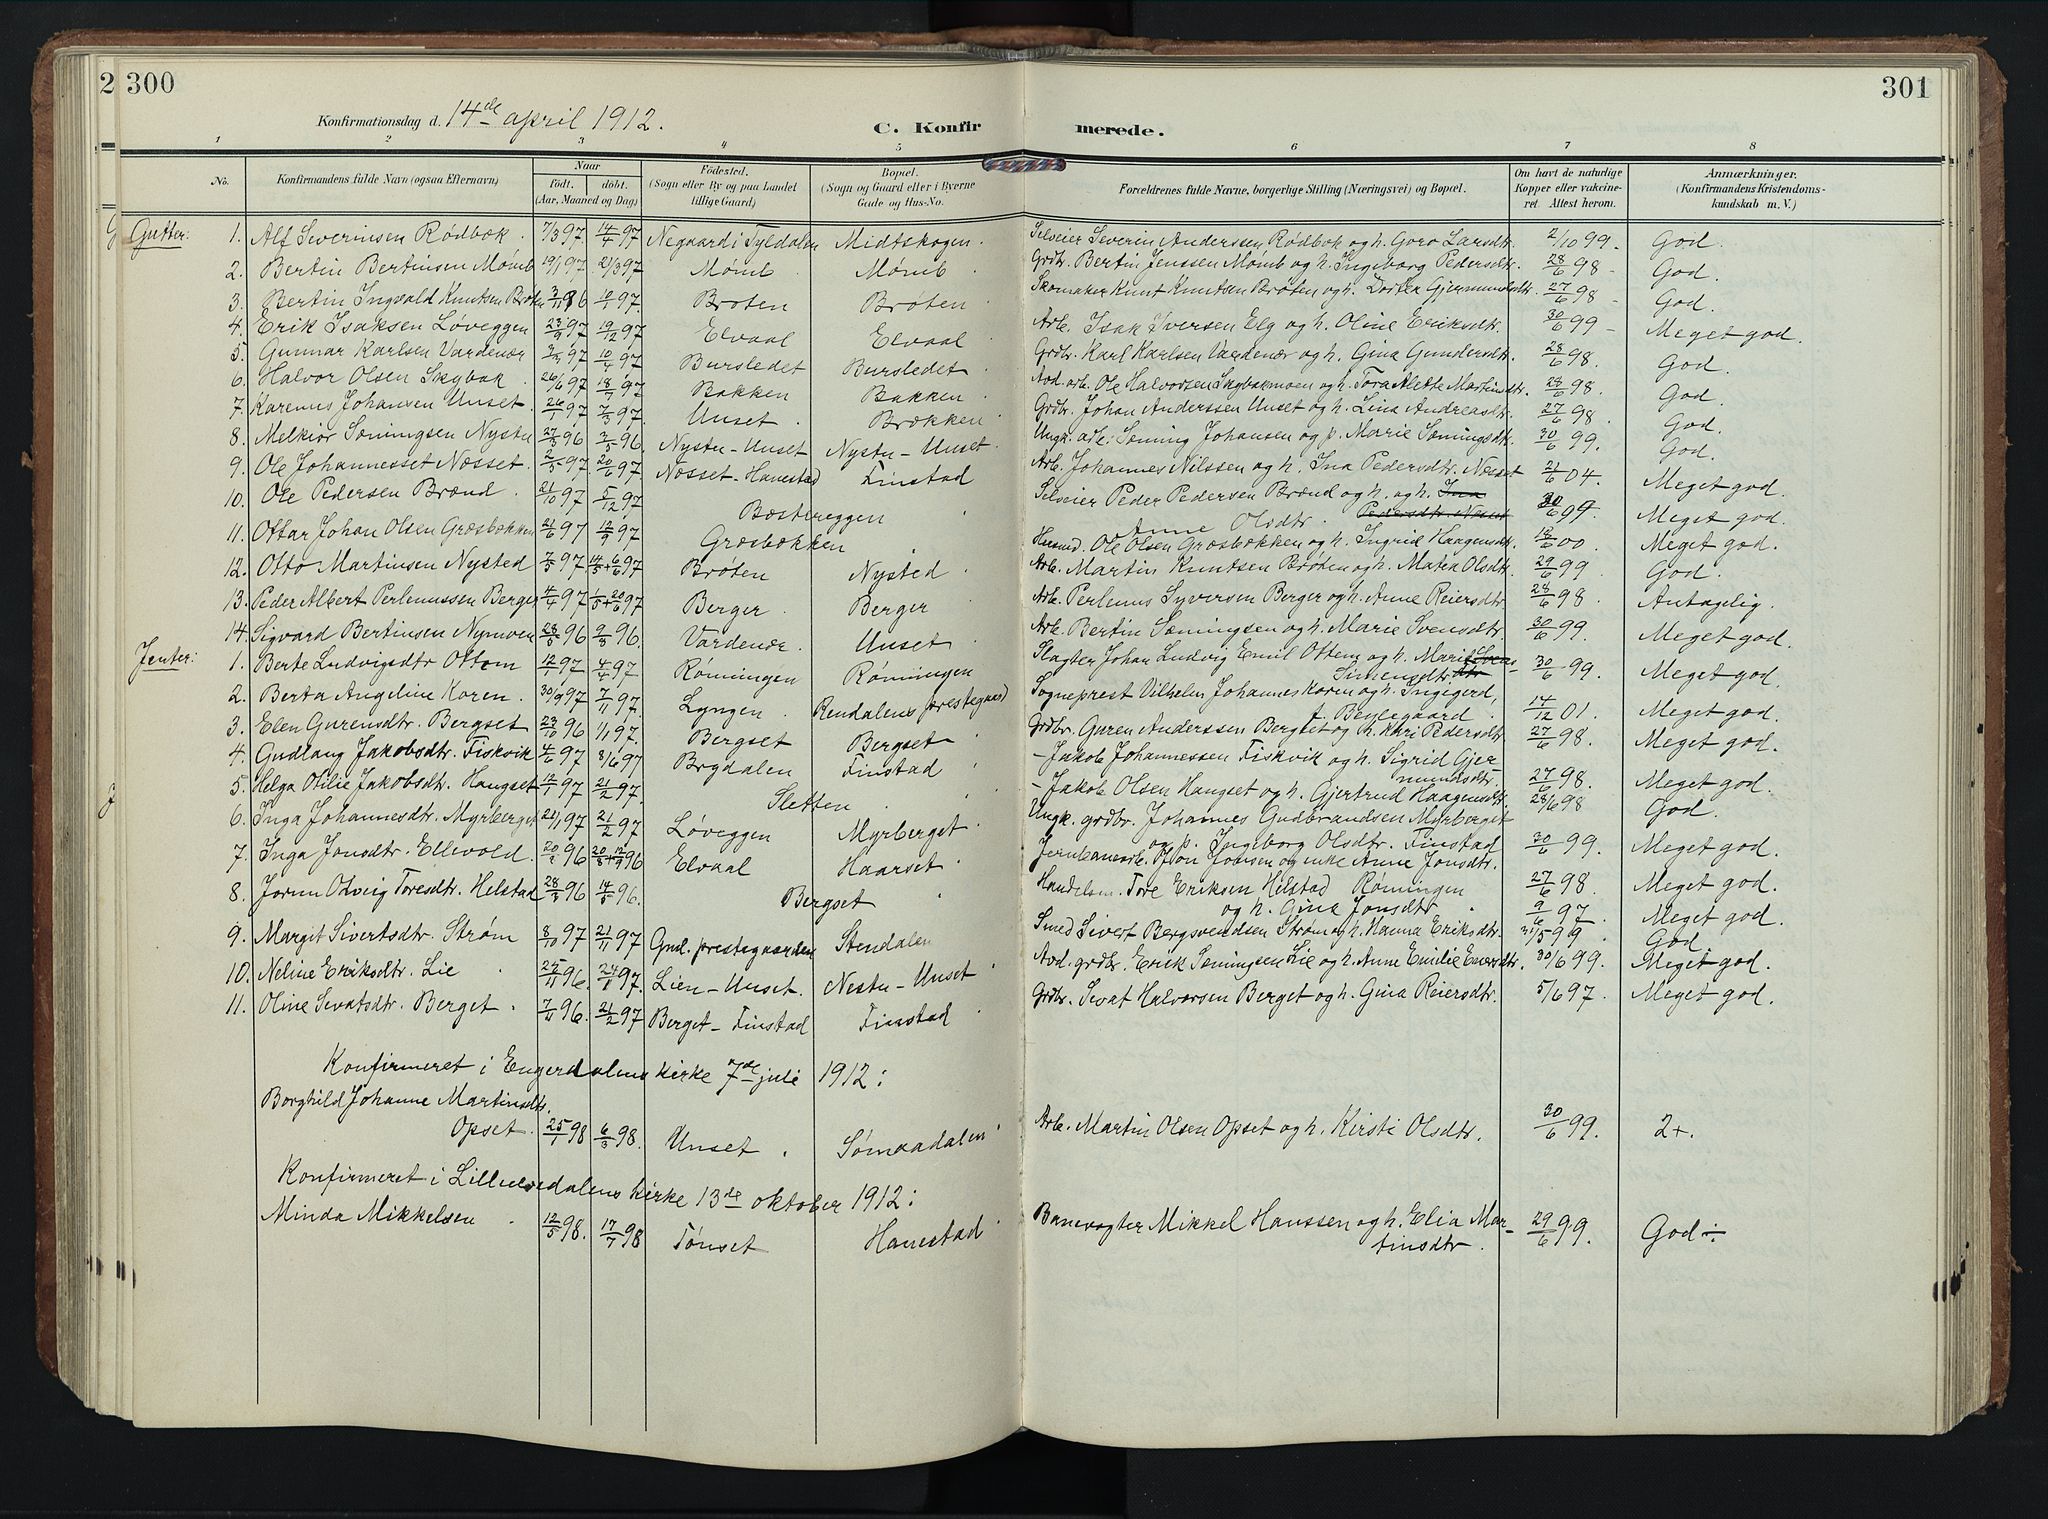 2 300
301
Konfirmationsdag d. 14de april 1912.
C. Konfir merede.
1 2 3 4 5 6 7 8
No.
Konfirmandens fulde Navn (ogsaa Efternavn)
Naar
født. døbt.
(Aar, Maaned og Dag)
Fødested.
(Sogn eller By og paa Landet
tillige Gaard)
Bopæl.
(Sogn og Gaard eller i Byerne
Gade og Hus-No.
Forældrenes fulde Navne, borgerlige Stilling (Næringsvei) og Bopæl.
Om havt de naturlige
Kopper eller vakcine-
ret. Attest herom.
Anmærkninger.
(Konfirmandens Kristendoms-
kundskab m. V.)
Gutter: 1. Alf Severinsen Rødbæk. 7/3 97. 14/4 97 Negaard i Tyldalen Midtskogen. Selveier Severin Anderssen Rødbæk og h. Goro Larsdtr. 2/10 99. God.
2. Bertin Bertinsen Mømb 19/1 97 21/3 97 Mømb Mømb Grdbr. Bertin Jenssen Mømb og h. Ingeborg Pedersdtr. 28/6 98 - God.
3. Bertin Ingvald Knutsen Brøten Brøten Brøten Skomaker Knut Knutsen Brøten og h. Dortea Gjermundsdtr. 27/6 98 - God.
4. Erik Isaksen Løveggen 23/9 97 19/12 97 Elvaal Elvaal Arb. Isak Iversen Elg og h. Oline Eriksdtr. 30/6 99 - Meget god.
5. Gunnar Karlsen Vardenær 97 10/4 97 Bursledet Bursledet Grdbr. Karl Karlsen Vardenær og h. Gina Gundersdtr. 28/6 98. God.
6. Halvor Olsen Skybak. 26/6 97 18/7 97 Bakken Bakken Avd. arb. Ole Halvorsen Skybakmoen og h. Tora Alette Martinsdtr. 28/6 98. God.
7. Karenus Johansen Unset. 26/1 97 7/3 97. Unset. Brækken Grdbr. Johan Anderssen Unset og h. Lina Andreasdtr. 27/6 98. God.
8. Melkior Sæmingsen Nystu 27/3 96 3/5 96. Nystu-Unset Nystu-Unset. Ungk. arb. Sæming Johansen og p. Marie Sæmingsdtr. 30/6 99. God.
9. Ole Johannesset Næsset. 2/5 97. 20/6 97 Næsset-Hanestad Finstad Arb. Johannes Nilssen og h. Ina Pedersdtr. Næsset 21/6 04. Meget god.
10. Ole Pedersen Brænd. 21/10 97 5/12 97 Bæstereggen Selveier Peder Pedersen Brænd og h. og h. Ina
Anne Olsdtr. Pedersdtr. Næsset 30/6 99. Meget god.
11. Ottar Johan Olsen Græsbækken 21/6 97 12/9 97 Græsbækken Husmd. Ole Olsen Græsbækken og h. Ingrid Haagensdtr. 18/6 00. Meget god.
12. Otto Martinsen Nysted 7/5 97. 14/5 + 6/6 97 Brøten Nysted Arb. Martin Knutsen Brøten og h. Matea Olsdtr. 29/6 99. God.
13. Peder Albert Perlemussen Berger 4/4 97 1/5 + 20/6 97 Berger. Berger Arb. Perlemus Syversen Berger og h. Anne Reiersdtr. 28/6 98. Antagelig.
14. Sigvard Bertinsen Nymoen 28/5 96 9/8 96. Vardenær. Unset Arb. Bertin Sæmingsen og h. Marie Svensdtr. 30/6 99. Meget god.
Jenter: 1. Berte Ludvigsdtr Ottem 12/1 97 4/4 97 Rønningen Rønningen Slagter Johan Ludvig Emil Ottem og h. Marit Svens-
Simensdtr. dtr 30/6 99. Meget god.
2. Berta Angeline Koren. 30/9 97 7/11 97. Lyngen. Rendalens prestegaard Sogneprest Vilhelm Johannes Koren og h. Ingegerd,
f. Beylegaard. 14/12 01. Meget god.
3. Elen Gurensdtr. Bergset 23/10 96 1/1 97. Bergset Bergset Grdbr. Guren Anderssen Bergset og h. Kari Pedersdtr 27/6 98. Meget god.
4. Gudlaug Jakobsdtr. Fiskvik 4/6 97 8/6 97 Brydalen Finstad - Jakob Johannessen Fiskvik og h. Sigrid Gjer
mundsdtr. 27/6 98. Meget god.
5. Helga Otilie Jakobsdtr. Hangset 12/1 97 21/2 97. Sletten. - Jakob Olsen Hangset og h. Gjertrud Haagensdtr. 28/6 98 God.
6. Inga Johannesdtr. Myrberget 22/1 97 21/2 97 Løveggen Myrberget Ungk. grdbr. Johannes Gudbrandsen Myrberget
og p. Ingeborg Olsdtr. Finstad 30/6 99. Meget god.
7. Inga Jonsdtr. Ellevold. 20/2 96 20/8 + 12/9 96 Elvaal Haarset Jernbanearb. Jon Jonsen og enke Anne Jonsdtr. 27/6 98. Meget god.
8. Jorun Odveig Toresdtr. Helstad 28/3 96 14/5 96. Bergset Handelsm. Tore Eriksen Helstad Røningen
og h. Gina Jonsdtr 9/6 97. Meget god.
9. Margit Sivertsdtr. Strøm 8/10 97 21/11 97 Gml. prestegaarden Stendalen Smed Sivert Bergsvendsen Strøm og h. Hanna Eriksdtr. 31/5 99. God
10. Neline Eriksdtr. Lie 25/11 96. 24/1 97. Lien-Unset. Nestu-Unset Avd. grdbr. Erik Sæmingsen Lie og h. Anne Emilie Enersdtr. 30/6 99. Meget god.
11. Oline Sevatsdtr. Berget. 7/11 96. 21/2 97 Berget-Finstad Finstad Grdbr. Sevat Halvorsen Berget og h. Gina Reiersdtr. 5/6 97. Meget god.
Konfirmeret i Engerdalens kirke 7de juli 1912:
Borghild Johanne Martinsdtr.
Opset. 25/1 98 6/3 98. Unset. Sømaadalen Arb. Martin Olsen Opset og h. Kirsti Olsdtr. 30/6 99. 2+.
Konfirmeret i Lilleelvedalens kirke 13de oktober 1912:
Minda Mikkelsen. 12/5 98. 17/7 98 Tønset Hanestad Banevogter Mikkel Hanssen og h. Elia Mar-
tinsdtr. 29/6 99. God ÷